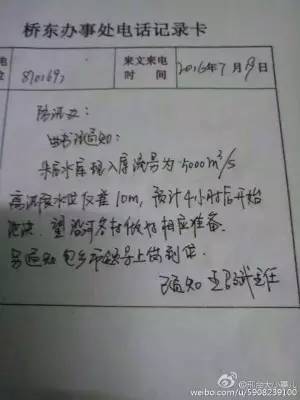 桥东办事处电话记录卡
电 8701697 来文来电 2016年7月19日
位 时间
防汛办:
电话通知:
朱庄水库现入库流量为5000m³/s
高洪水位仅差10m,预计4小时后开始
泄洪.望沿河各村做好相应准备.
另通知包乡干部马上做到位.
通知
@邢台大小事儿
weibo.com/u/5908239100